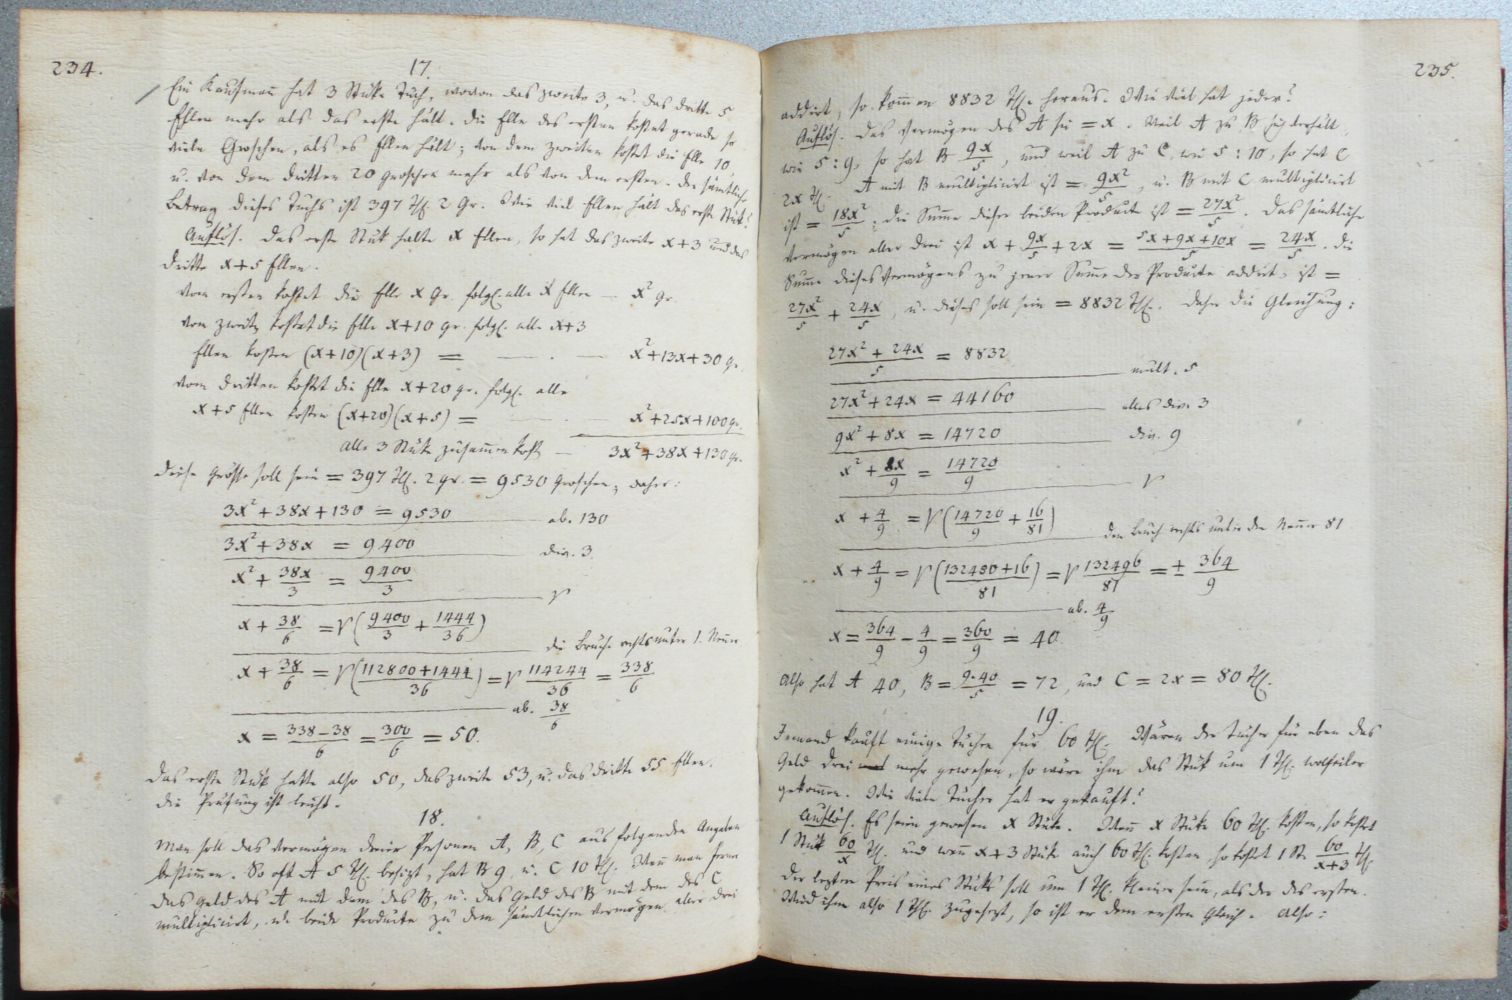 234.
17.
Ein Kaufmañ hat 3 Stüke Tuch, wovon das zweite 3, u. das dritte 5
Ellen mehr als das erste hält. Die Elle des ersten kostet gerade so
viele Groschen, als es Ellen hält; von dem zweiten kostet die Elle 10,
u. von dem dritten 20 Groschen mehr als von dem ersten. Der sämtliche
Betrag dieses Tuchs ist 397 Thl. 2 Gr. Wie viel Ellen hält das erste Stük?
Auflös. Das erste Stük halte x Ellen, so hat das zweite x+3 und das
dritte x+5 Ellen.
Vom ersten kostet die Elle x Gr. folgl. alle x Ellen — x² Gr.
Vom zweiten kostet die Elle x+10 Gr. folgl. alle x+3
Ellen kosten (x+10)(x+3) = — . — x²+13x+30 Gr.
Vom dritten kostet die Elle x+20 Gr. folgl. alle
x+5 Ellen kosten (x+20)(x+5) = x²+25x+100 Gr.
Alle 3 Stüke zusam̄en kosten — 3x²+38x+130 Gr.
Diese Größe soll sein = 397 Thl. 2 Gr. = 9530 Groschen; daher:
3x²+38x+130 = 9530
ab. 130
3x²+38x = 9400
div. 3
x² + 38x/3 = 9400/3
√
x + 38/6 = √(9400/3 + 1444/36)
die Brüche rechts unter 1. Neñer
x + 38/6 = √(112800+1444/36) = √114244/36 = 338/6
ab. 38/6
x = 338−38/6 = 300/6 = 50.
Das erste Stük hatte also 50, das zweite 53, u. das dritte 55 Ellen.
Die Prüfung ist leicht.
18.
Man soll das Vermögen dreier Personen A, B, C aus folgenden Angaben
bestim̄en. So oft A 5 Thl. besizt, hat B 9, u. C 10 Thl. Weñ man ferner
das Geld des A mit dem des B, u. das Geld des B mit dem des C
multiplicirt, u. beide Producte zu dem sämtlichen Vermögen aller drei
235.
addirt, so kom̄en 8832 Thl. heraus. Wie viel hat jeder?
Auflös. Das Vermögen des A sei = x. Weil A zu B sich verhält,
wie 5:9, so hat B 9x/5, und weil A zu C, wie 5:10, so hat C
2x Thl. A mit B multiplicirt ist = 9x²/5, u. B mit C multiplicirt
ist = 18x²/5; die Sum̄e dieser beiden Producte ist = 27x²/5. Das sämtliche
Vermögen aller drei ist x + 9x/5 + 2x = 5x+9x+10x/5 = 24x/5. Die
Sum̄e dieses Vermögens zu jener Sum̄e der Producte addirt, ist =
27x²/5 + 24x/5, u. dieses soll sein = 8832 Thl. Daher die Gleichung:
27x² + 24x/5 = 8832
mult. 5
27x² + 24x = 44160
alles div. 3
9x² + 8x = 14720
div. 9
x² + 8x/9 = 14720/9
√
x + 4/9 = √(14720/9 + 16/81)
den Bruch rechts unter den Neñer 81
x + 4/9 = √(132480+16/81) = √132496/81 = ± 364/9
ab. 4/9
x = 364/9 − 4/9 = 360/9 = 40
Also hat A 40, B = 9·40/5 = 72, und C = 2x = 80 Thl.
19.
Jemand kauft einige Tücher für 60 Thl. Wären der Tücher für eben das
Geld drei mehr gewesen, so wäre ihm das Stük um 1 Thl. wolfeiler
gekom̄en. Wie viele Tücher hat er gekauft?
Auflös. Es seien gewesen x Stüke. Weñ x Stüke 60 Thl. kosten, so kostet
1 Stük 60/x Thl. und weñ x+3 Stüke auch 60 Thl. kosten so kostet 1 St. 60/x+3 Thl.
Der lezte Preis eines Stüks soll um 1 Thl. kleiner sein, als der des ersten.
Wird ihm also 1 Thl. zugesezt, so ist er dem ersten gleich. Also: